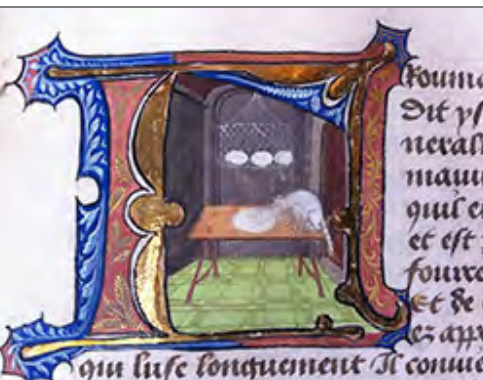 Frouma
Dit ys
nerall
mauu
quil e
et est
Et de
es app
qui luse longuement Il conuie